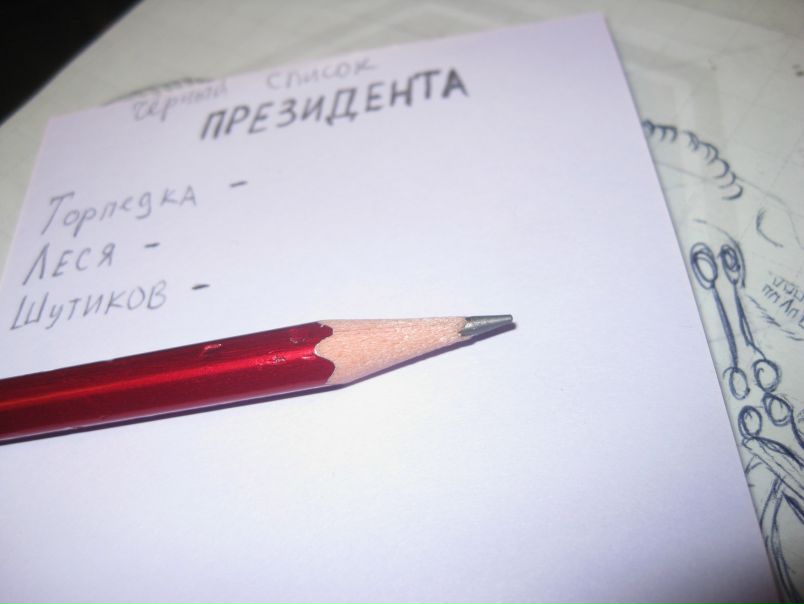 чёрный список
ПРЕЗИДЕНТА
Торпедка -
Леся -
Шутиков -